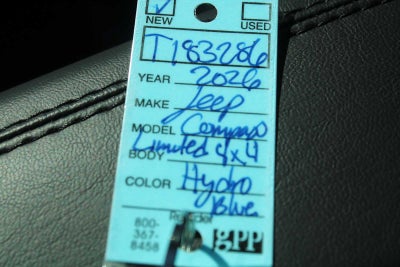 NEW USED
T183286
YEAR 2026
MAKE Jeep
MODEL Compass
Limited 4x4
BODY
COLOR Hydro
Blue
Reorder
800-
367-
8458
gpp